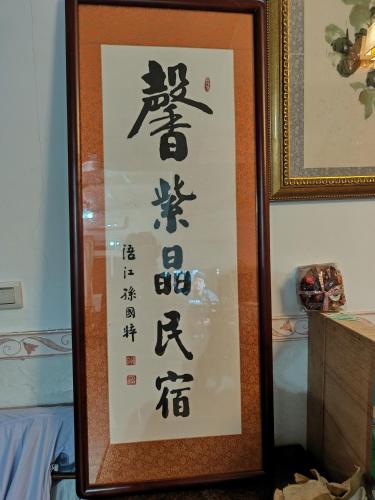 馨紫晶民宿
浯江孫國粹